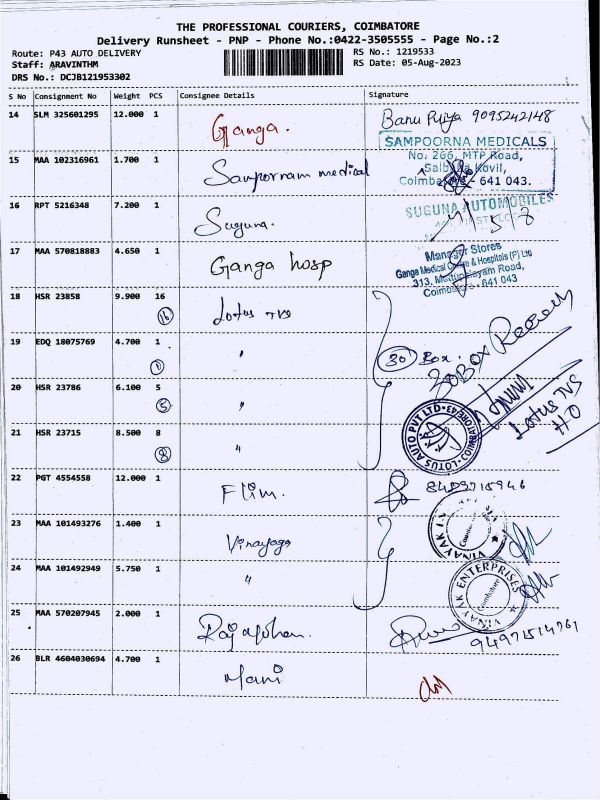 THE PROFESSIONAL COURIERS, COIMBATORE
Delivery Runsheet - PNP - Phone No.:0422-3505555 - Page No.:2
Route: P43 AUTO DELIVERY RS No.: 1219533
Staff: ARAVINTHM RS Date: 05-Aug-2023
DRS No.: DCJB121953302
S No Consignment No Weight PCS Consignee Details Signature
14 SLM 325601295 12.000 1 Ganga. Banu Priya 9095242148
SAMPOORNA MEDICALS
No. 266, MTP Road,
15 MAA 102316961 1.700 1 Sampornam medical
Saibaba Kovil,
Coimbatore - 641 043.
16 RPT 5216348 7.200 1 Suguna.
SUGUNA AUTOMOBILES
17 MAA 570818883 4.650 1 Ganga hosp
Manager Stores
Ganga Medical Centre & Hospitals (P) Ltd
313, Mettupalayam Road,
Coimbatore - 641 043
18 HSR 23858 9.900 16 Lotus TVS
16
19 EDQ 18075769 4.700 1 "
30 Box.
30 BOX
1
20 HSR 23786 6.100 5 "
5
LOTUS AUTO PVT LTD
Lotus TVS
HO
21 HSR 23715 8.500 8 "
8
22 PGT 4554558 12.000 1 Flim.
23 MAA 101493276 1.400 1 Vinayaga
24 MAA 101492949 5.750 1 "
VINAYAK ENTERPRISES
Coimbatore
25 MAA 570207945 2.000 1 Raj Mohan.
26 BLR 4604030694 4.700 1 Mani